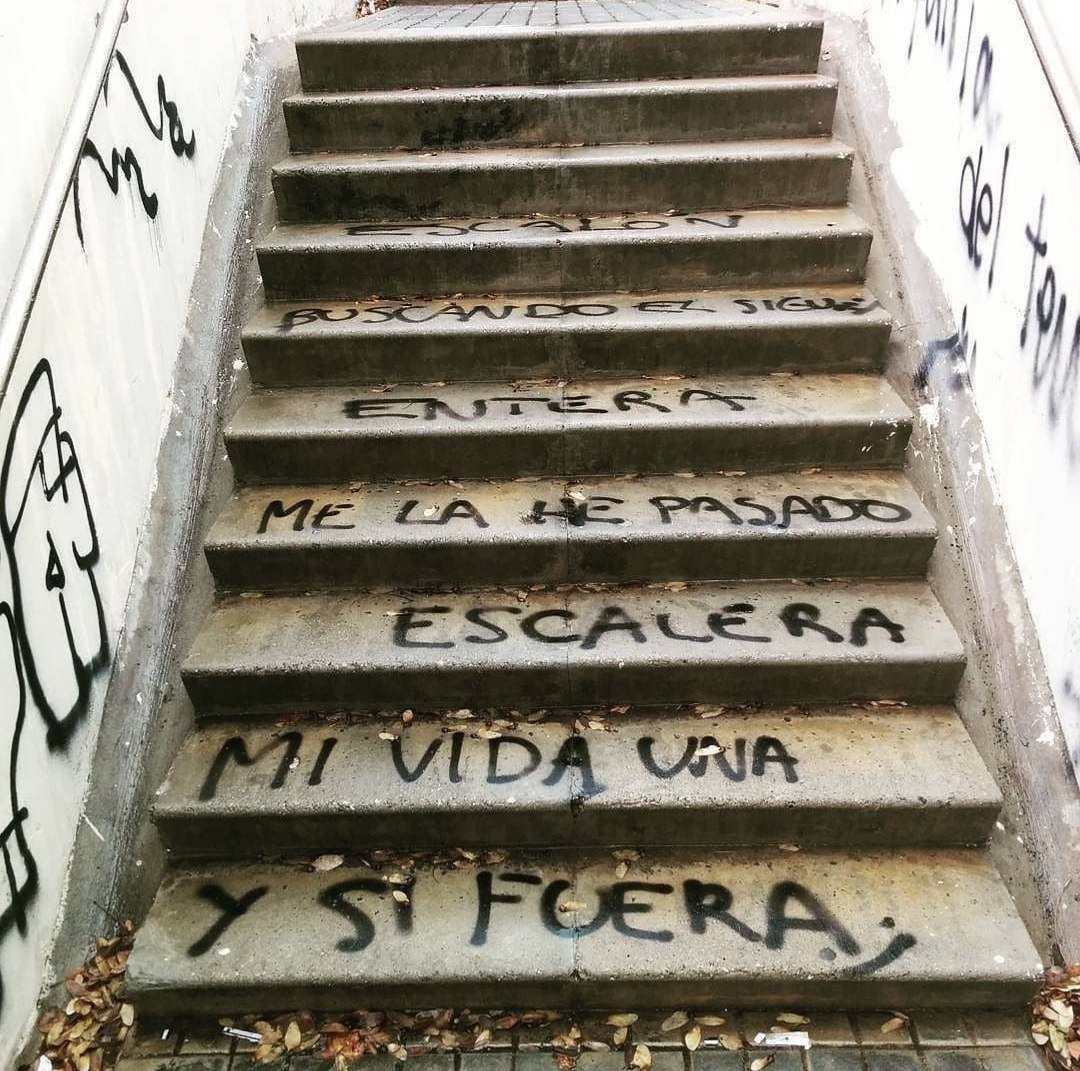 Y SI FUERA,
MI VIDA UNA
ESCALERA
ME LA HE PASADO
ENTERA
BUSCANDO EL SIGUE
ESCALÓN
del